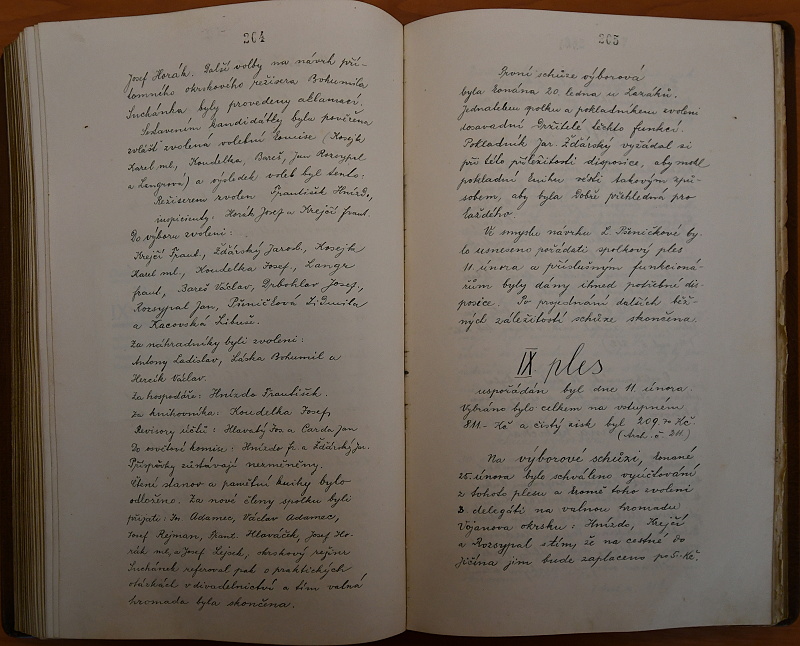 204
Josef Horák. Další volby na návrh pří-
tomného okrskového režisera Bohumila
Suchánka byly provedeny aklamací.
Sestavením kandidátky byla pověřena
zvlášť zvolena volební komise (Kosejk
Karel ml., Koudelka, Bareš, Jan Rozsypal
a Langrová) a výsledek voleb byl tento:
Režiserem zvolen František Hnízdo,
inspicienty: Horák Josef a Krejčí Frant.
Do výboru zvoleni:
Krejčí Frant., Žďárský Jarosl., Kosejk
Karel ml., Koudelka Josef., Langr
Frant., Bareš Václav, Drbohlav Josef,
Rozsypal Jan, Pšeničková Lidmila
a Kacovská Libuše.
Za náhradníky byli zvoleni:
Antony Ladislav, Láska Bohumil a
Hercik Václav.
Za hospodáře: Hnízdo František.
Za knihovníka: Koudelka Josef,
Revisory účtů: Hlavatý Jos. a Čarda Jan
Do osvětné komise: Hnízdo fr. a Žďárský Jar.
Příspěvky zůstávají nezměněny.
Čtení stanov a pamětní knihy bylo
odloženo. Za nové členy spolku byli
přijati: Fr. Adamec, Václav Adamec,
Josef Rejman, Frant. Hlaváček, Josef Ho-
rák ml. a Josef Lejsek, okrskový režiser
Suchánek referoval pak o praktických
otázkách v divadelnictví a tím valná
hromada byla skončena.
205
První schůze výborová
byla konána 20. ledna u Lezáků.
Jednatelem spolku a pokladníkem zvoleni
dosavadní držitelé těchto funkcí.
Pokladník Jar. Žďárský vyžádal si
při této příležitosti disposice, aby mohl
pokladní knihu vésti takovým způ-
sobem, aby byla dobře přehledná pro
každého.
Ve smyslu návrhu L. Pšeničkové by-
lo usneseno pořádati spolkový ples
11. února a příslušným funkcioná-
řům byly dány ihned potřebné dis-
posice. Po projednání dalších běž-
ných záležitostí schůze skončena.
IX ples
uspořádán byl dne 11. února.
Vybráno bylo celkem na vstupném
811.- Kč a čistý zisk byl 209.70 Kč.
(Arch. č. 211)
Na výborové schůzi, konané
25. února bylo schváleno vyúčtování
z tohoto plesu a kromě toho zvoleni
3 delegáti na valnou hromadu
Vojanova okrsku: Hnízdo, Krejčí
a Rozsypal s tím, že na cestné do
Jičína jim bude zaplaceno po 5.- Kč.